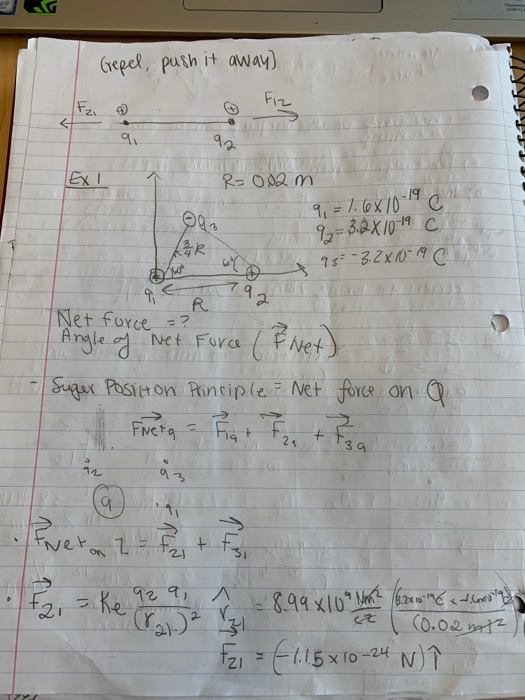 (repel, push it away)
F21 ⊕ ⊕ F12
q1 q2
Ex 1 R = 0.02 m
q1 = 1.6 x 10^-19 C
q2 = 3.2 x 10^-19 C
q3 = -3.2 x 10^-19 C
⊖ q3
3/4 R
60°
⊕ ⊕
q1 q2
R
Net force = ?
Angle of Net Force (F⃗ Net)
- Super Position Principle = Net force on Q
F⃗Net q = F⃗1q + F⃗2q + F⃗3q
q2 q3
q q1
· F⃗Net on 1 = F⃗21 + F⃗31
· F⃗21 = Ke q2 q1 / (r21)^2 r̂21 = 8.99 x 10^9 Nm^2/C^2
(0.02 m)^2
F⃗21 = (-1.15 x 10^-24 N) ↑